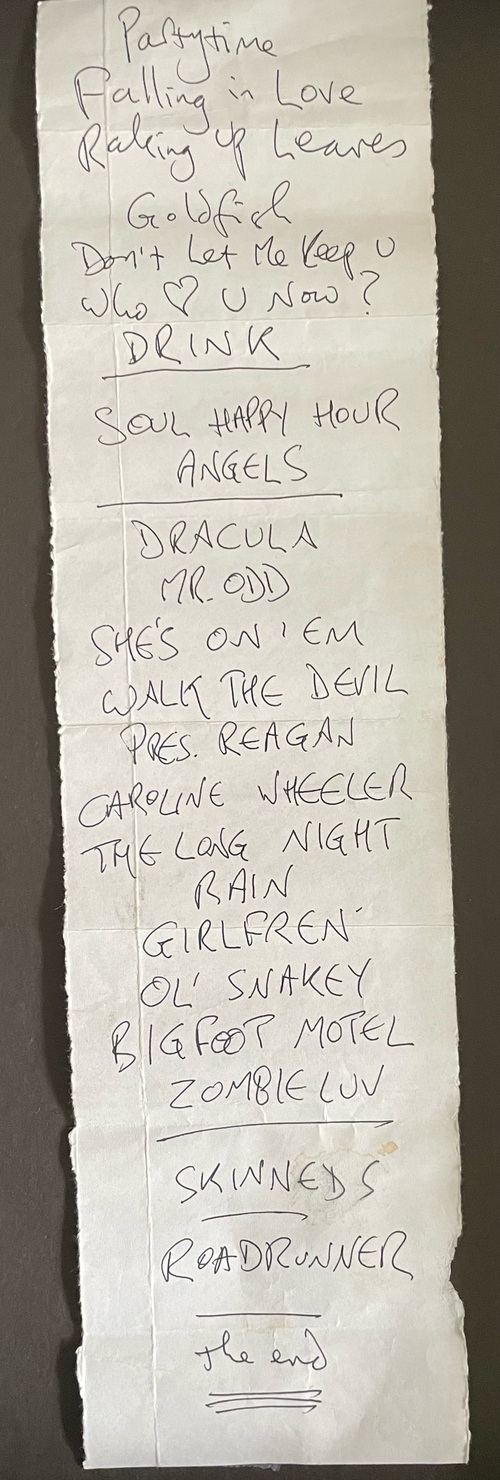 Partytime
Falling in Love
Raking up Leaves
Goldfish
Don't Let Me Keep U
Who ♡ U Now?
DRINK
SOUL HAPPY HOUR
ANGELS
DRACULA
MR. ODD
SHE'S ON 'EM
WALK THE DEVIL
PRES. REAGAN
CAROLINE WHEELER
THE LONG NIGHT
RAIN
GIRLFREN'
OL' SNAKEY
BIGFOOT MOTEL
ZOMBIE LUV
SKINNEDS
ROADRUNNER
the end